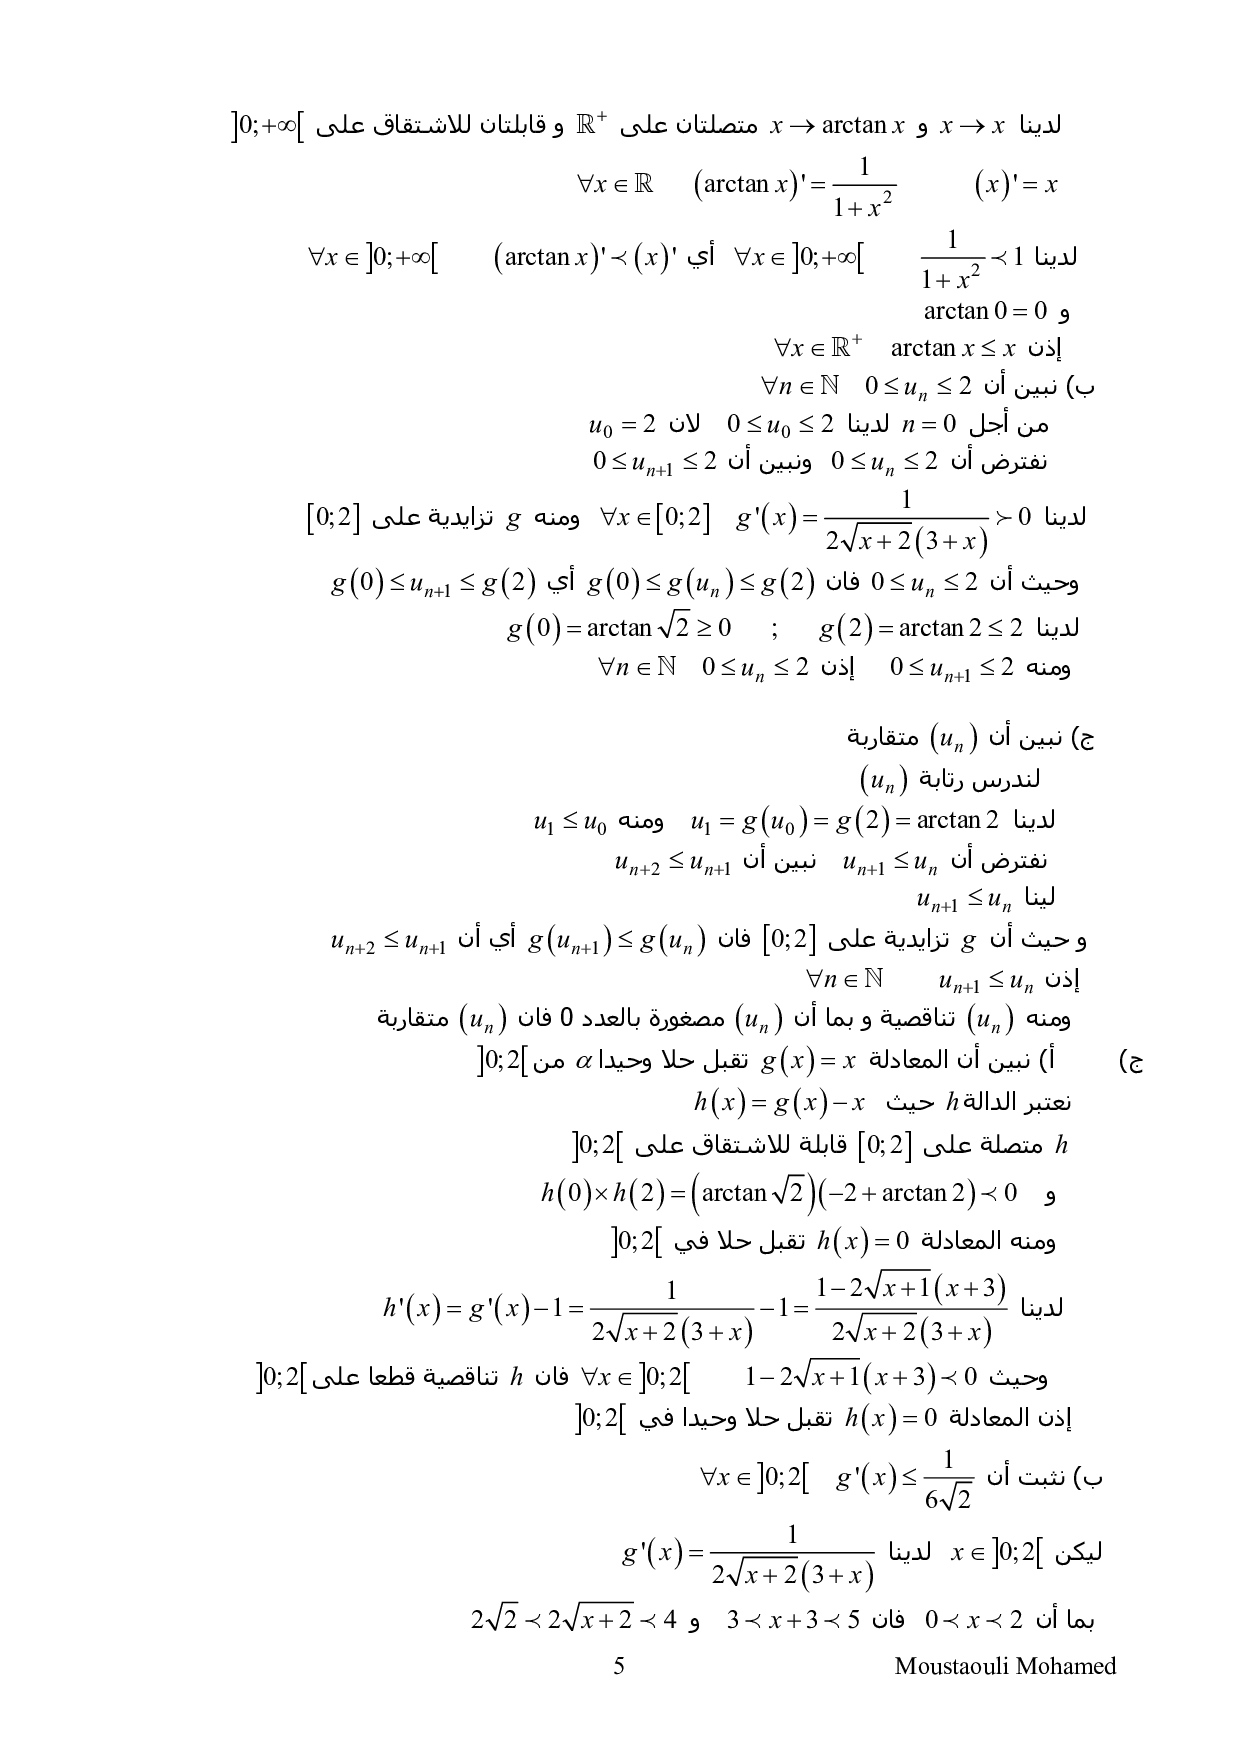 لدينا x → x و x → arctan x متصلتان على ℝ⁺ و قابلتان للاشتقاق على ]0;+∞[
(x)' = x (arctan x)' = 1/(1+x²) ∀x ∈ ℝ
لدينا 1/(1+x²) ≺ 1 ∀x ∈ ]0;+∞[ أي (arctan x)' ≺ (x)' ∀x ∈ ]0;+∞[
و arctan 0 = 0
إذن ∀x ∈ ℝ⁺ arctan x ≤ x
ب) نبين أن ∀n ∈ ℕ 0 ≤ uₙ ≤ 2
من أجل n = 0 لدينا 0 ≤ u₀ ≤ 2 لان u₀ = 2
نفترض أن 0 ≤ uₙ ≤ 2 ونبين أن 0 ≤ uₙ₊₁ ≤ 2
لدينا ∀x ∈ [0;2] g'(x) = 1/(2√(x+2)(3+x)) ≻ 0 ومنه g تزايدية على [0;2]
وحيث أن 0 ≤ uₙ ≤ 2 فان g(0) ≤ g(uₙ) ≤ g(2) أي g(0) ≤ uₙ₊₁ ≤ g(2)
لدينا g(0) = arctan √2 ≥ 0 ; g(2) = arctan 2 ≤ 2
ومنه 0 ≤ uₙ₊₁ ≤ 2 إذن ∀n ∈ ℕ 0 ≤ uₙ ≤ 2
ج) نبين أن (uₙ) متقاربة
لندرس رتابة (uₙ)
لدينا u₁ = g(u₀) = g(2) = arctan 2 ومنه u₁ ≤ u₀
نفترض أن uₙ₊₁ ≤ uₙ نبين أن uₙ₊₂ ≤ uₙ₊₁
لينا uₙ₊₁ ≤ uₙ
و حيث أن g تزايدية على [0;2] فان g(uₙ₊₁) ≤ g(uₙ) أي أن uₙ₊₂ ≤ uₙ₊₁
إذن ∀n ∈ ℕ uₙ₊₁ ≤ uₙ
ومنه (uₙ) تناقصية و بما أن (uₙ) مصغورة بالعدد 0 فان (uₙ) متقاربة
ج) أ) نبين أن المعادلة g(x) = x تقبل حلا وحيدا α من ]0;2[
نعتبر الدالة h حيث h(x) = g(x) − x
h متصلة على [0;2] قابلة للاشتقاق على ]0;2[
و h(0) × h(2) = (arctan √2)(−2 + arctan 2) ≺ 0
ومنه المعادلة h(x) = 0 تقبل حلا في ]0;2[
لدينا h'(x) = g'(x) − 1 = 1/(2√(x+2)(3+x)) − 1 = (1 − 2√(x+1)(x+3))/(2√(x+2)(3+x))
وحيث 1 − 2√(x+1)(x+3) ≺ 0 ∀x ∈ ]0;2[ فان h تناقصية قطعا على ]0;2[
إذن المعادلة h(x) = 0 تقبل حلا وحيدا في ]0;2[
ب) نثبت أن ∀x ∈ ]0;2[ g'(x) ≤ 1/(6√2)
ليكن x ∈ ]0;2[ لدينا g'(x) = 1/(2√(x+2)(3+x))
بما أن 0 ≺ x ≺ 2 فان 3 ≺ x+3 ≺ 5 و 2√2 ≺ 2√(x+2) ≺ 4
5 Moustaouli Mohamed